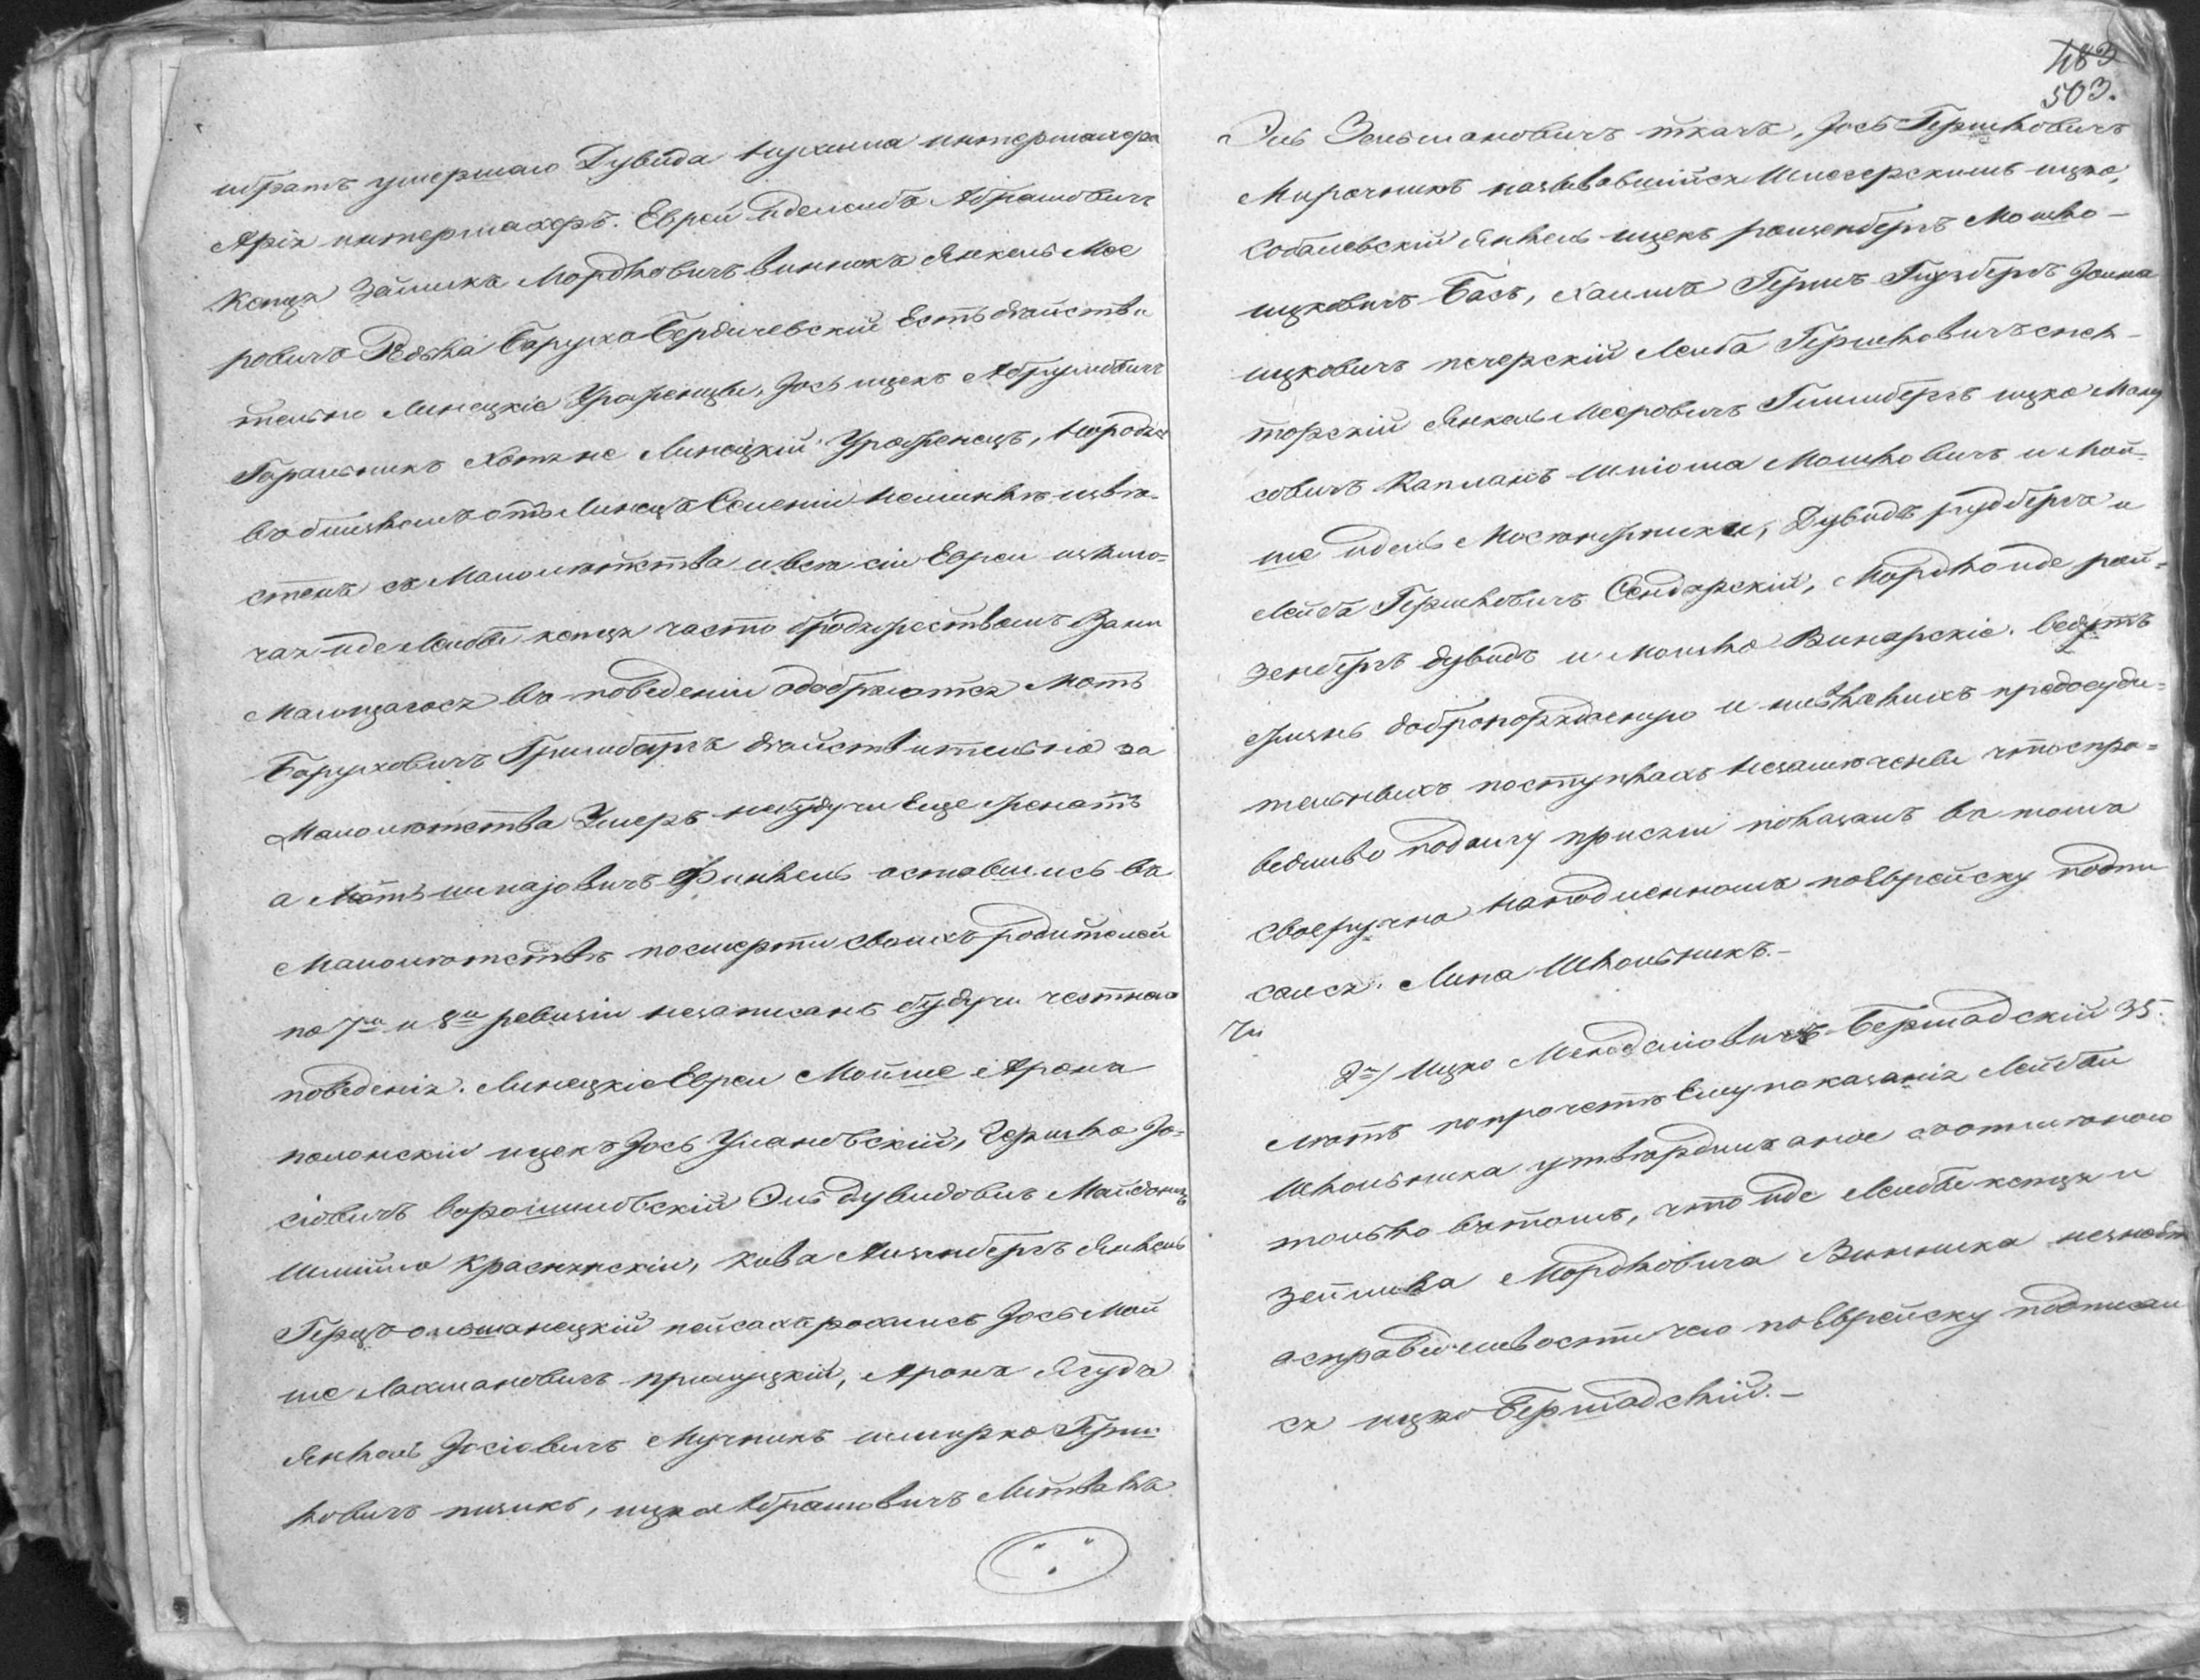 ибратъ умершаго Дувида Нухима интермахера
Арія интермахеръ. Еврей Иделейба Абрамовичъ
Копця Зейлика Мордковичъ Винникъ Янкель Мее
ровичъ Редька Баруха Бердичевскій Есть дѣйстви
тельно Линецкіе Уроженцы, Іось ицекъ Абрумовичъ
Гаральникъ Хотяне Линецкій Уроженецъ, Но родився
въ близкомъ отъ Линецъ Селеніи но мнѣ извѣ-
стенъ съ Малолѣтства и всѣ сіи Евреи изключ
чая Иде Лейбы копця часто бродяжествомъ Зани
мающагося въ поведеніи одобряются Мотъ
Баруховичъ Гринбергъ дѣйствительно за
Малолѣтства Умеръ небудучи Еще женатъ
а Мотъ Шмаіовичъ Финкель оставшись въ
Малолѣтствѣ посмерти своихъ родителей
по 7й и 8й ревизіи незаписанъ будучи честнаго
поведенія. Линецкіе Евреи Мойше Арона
полонскіи ицекъ Іось Улановскій, Гершко Іо-
сіовичъ Ворошиловскій Эль Дувидовичъ Майданикъ
Шмило Краснянскіи, Кива Айзенбергъ Янкель
Герцъ Ольшанецкій пейсахъ рохлисъ Іось Мой
ше Лахмановичъ прилуцкій, Аронъ Ягуда
Янкель Іосіовичъ Мучникъ шмирко Герш
ковичъ пизикъ, ицко Абрамовичъ Литвакъ
483
503.
Эль Зельмановичъ ткачъ, Іось Гершковичъ
Мирочникъ называвшійся Шносерскимъ ицко,
Собалевскій Янкель ицекъ розенбергъ Мошко
ицковичъ Басъ, Хаимъ Гершъ Гузбергъ Іоина
ицковичъ печерскій Лейба Гершковичъ спек-
торскій Янкель Меаровичъ Гинзбергъ ицко Ману
совичъ Капланъ Шліома Мошковичъ и Мой-
ше идель Мостонжники, Дувидъ рудбергъ и
Лейба Гершковичъ Сендарскій, Мордко Иде рой-
зенбергъ дувидъ и Мошко Винарскіе. ведутъ
Жизнь добропорядочную и нивъкакихъ предосуди-
тельныхъ поступкахъ незамѣчены что спра-
ведливо подолгу присяги показалъ въ томъ
своеручно на подленномъ поеврейску подпи
сался. Липа Школьникъ.-
Чи
2е/ Ицко Менделіовичъ Бершадскій 35.
лѣтъ попрочетѣ Ему показанія Лейбы
Школьника утвердилъ оное съотмѣною
только вътомъ, что Иде Лейбы копця и
Зейлика Мордковича Винника незнаетъ
асправедливости чего поЕврейску подписал
ся ицко Бершадскій.-